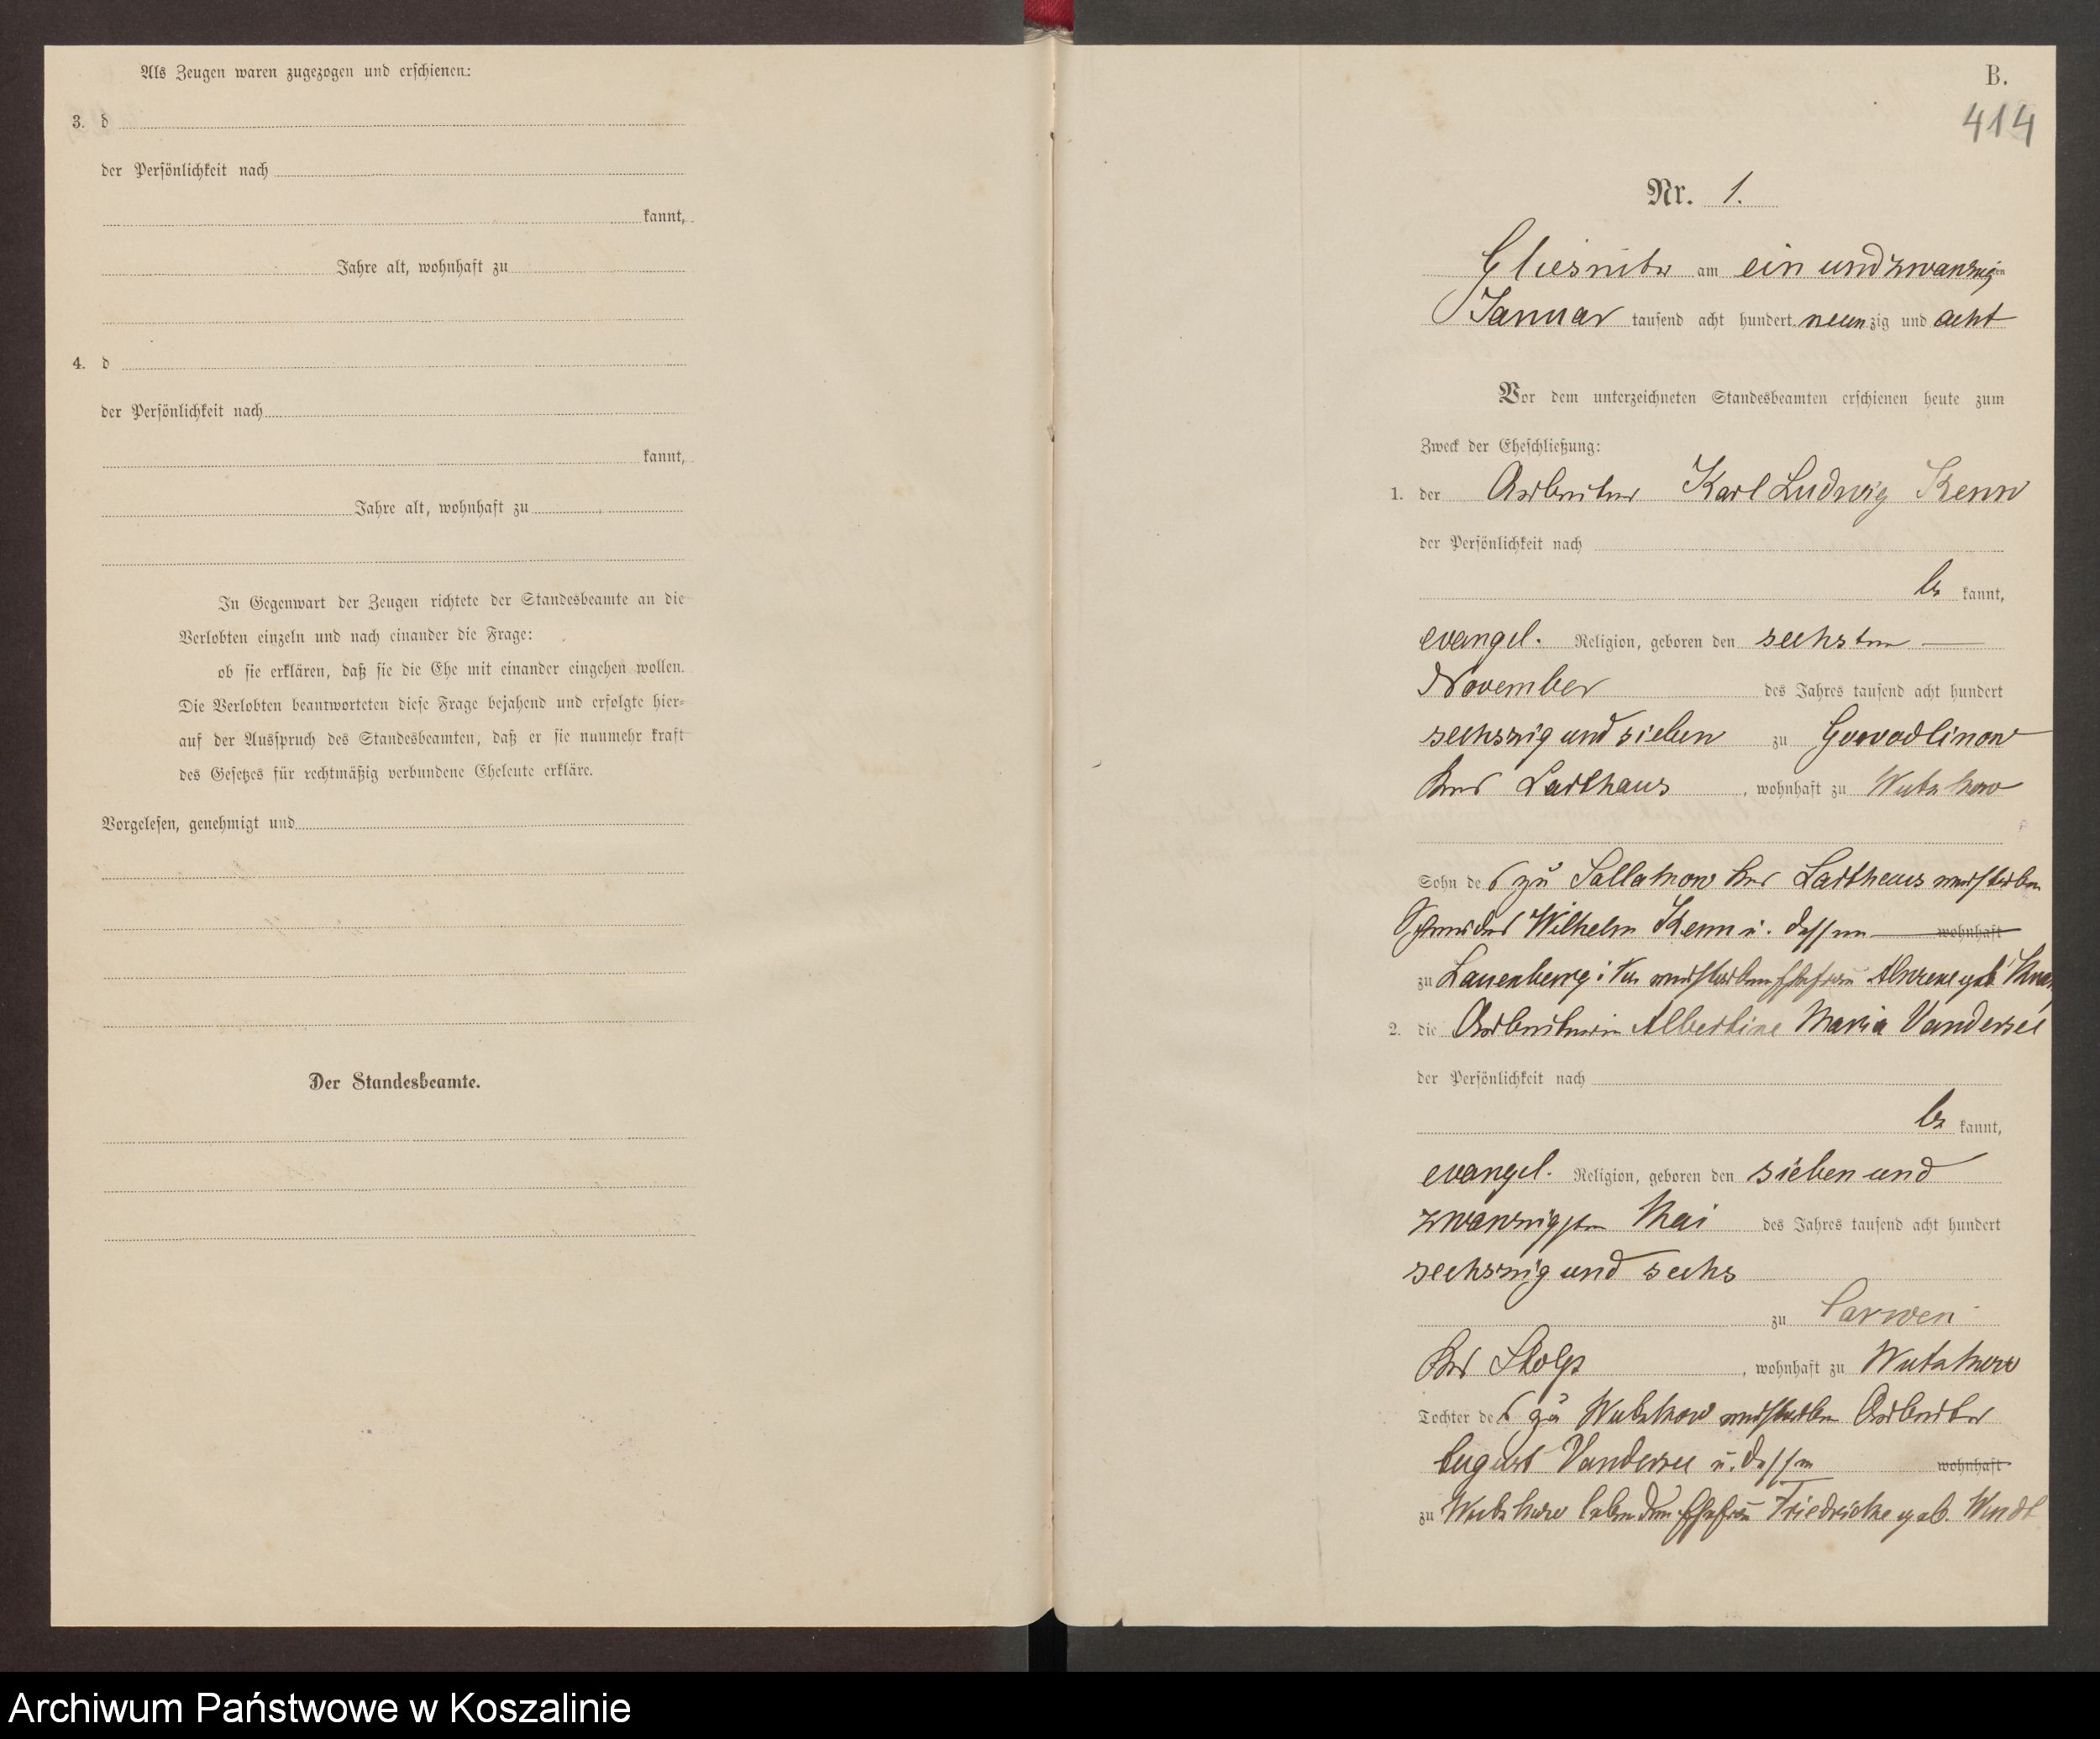 Als Zeugen waren zugezogen und erschienen:
3. d
der Persönlichkeit nach
kannt,
Jahre alt, wohnhaft zu
4. d
der Persönlichkeit nach
kannt,
Jahre alt, wohnhaft zu
In Gegenwart der Zeugen richtete der Standesbeamte an die
Verlobten einzeln und nach einander die Frage:
ob sie erklären, daß sie die Ehe mit einander eingehen wollen.
Die Verlobten beantworteten diese Frage bejahend und erfolgte hier-
auf der Ausspruch des Standesbeamten, daß er sie nunmehr kraft
des Gesetzes für rechtmäßig verbundene Eheleute erkläre.
Vorgelesen, genehmigt und
Der Standesbeamte.
B.
414
Nr. 1.
Gliesnitz am ein und zwanzigsten
Januar tausend acht hundert neunzig und acht
Vor dem unterzeichneten Standesbeamten erschienen heute zum
Zweck der Eheschließung:
1. der Arbeiter Karl Ludwig Kenn
der Persönlichkeit nach
be kannt,
evangel. Religion, geboren den sechsten
November des Jahres tausend acht hundert
sechszig und sieben zu
Krs Carthaus, wohnhaft zu Wutzkow
Sohn des zu Sallakow Krs Carthaus verstorbenen
Wilhelm Kenn u. dessen wohnhaft
zu Lauenburg i Pom verstorbenen Ehefrau geb.
2. die Arbeiterin Albertine Maria Vandersee
der Persönlichkeit nach
be kannt,
evangel. Religion, geboren den sieben und
zwanzigsten Mai des Jahres tausend acht hundert
sechszig und sechs
zu Carwen
Krs Stolp, wohnhaft zu Wutzkow
Tochter des zu Wutzkow verstorbenen Arbeiter
August Vandersee u. dessen wohnhaft
zu Wutzkow lebenden Ehefrau Friedricke geb. Wendt
Archiwum Państwowe w Koszalinie